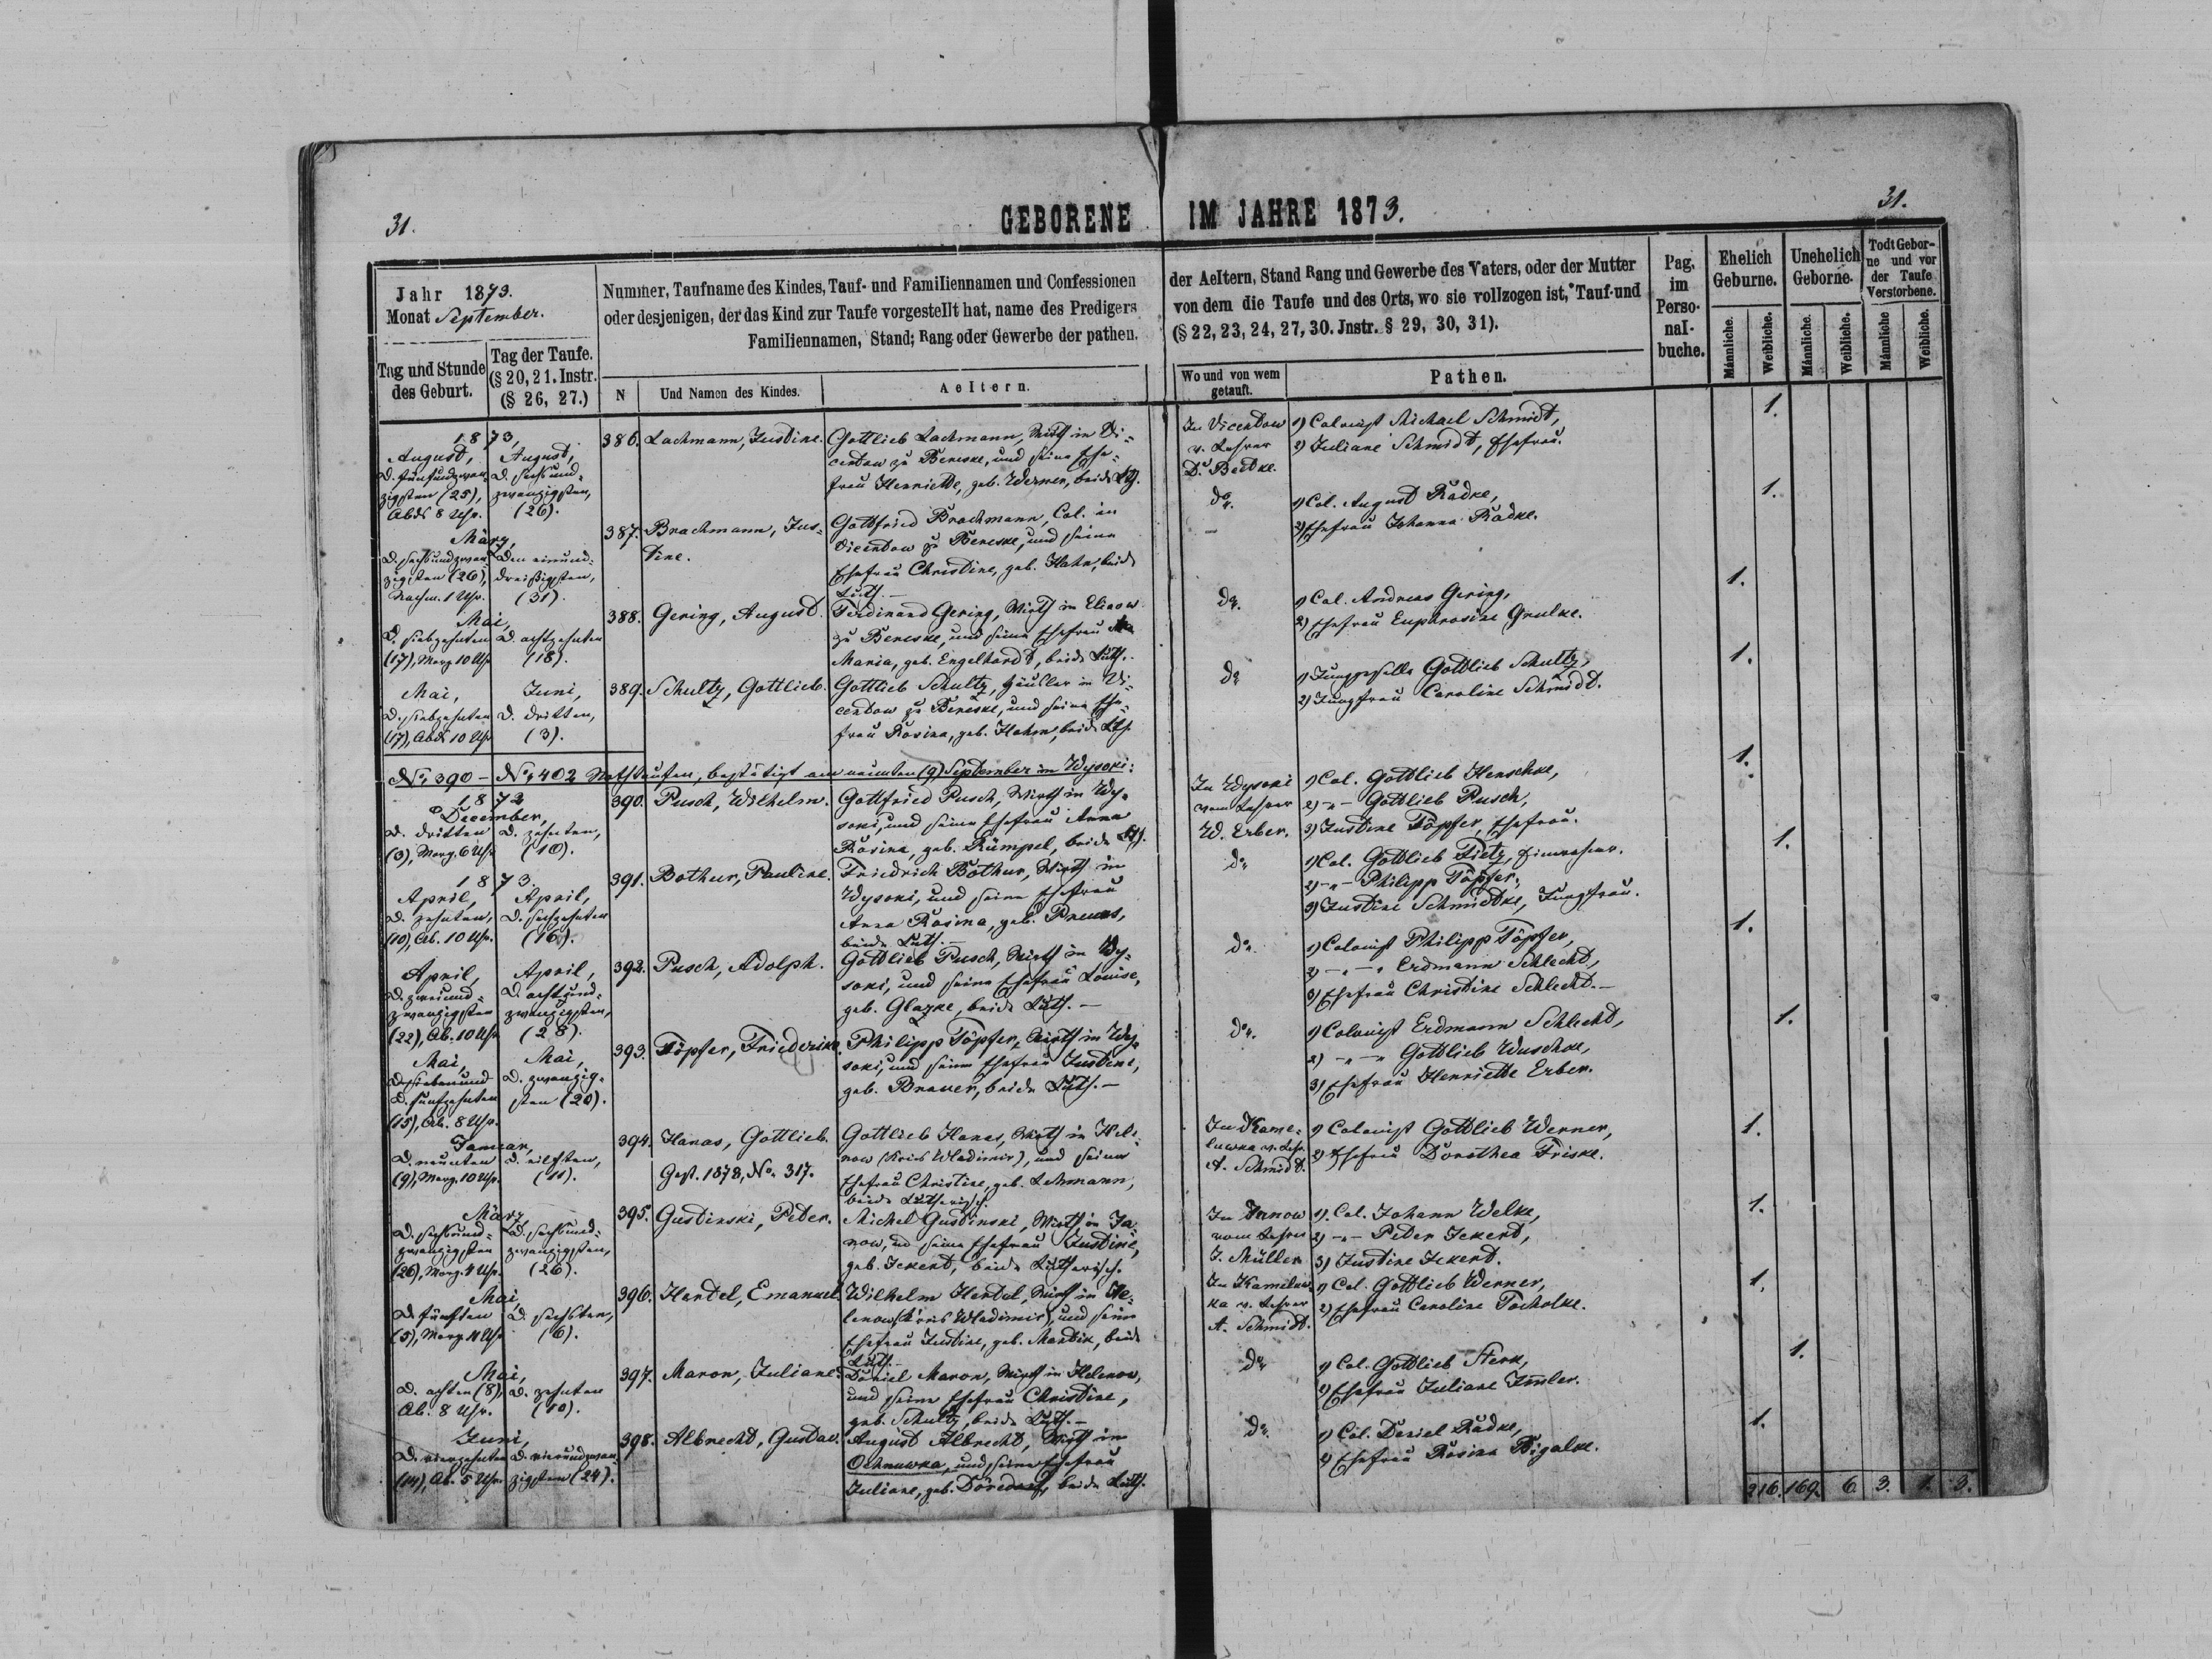 31.
GEBORENE IM JAHRE 1873.
31.
Jahr 1873.
Monat September.
Tag und Stunde des Geburt.
Tag der Taufe.
(§ 20, 21. Instr.
(§ 26, 27.)
Nummer, Taufname des Kindes, Tauf- und Familiennamen und Confessionen
oder desjenigen, der das Kind zur Taufe vorgestellt hat, name des Predigers
Familiennamen, Stand; Rang oder Gewerbe der pathen.
N
Und Namen des Kindes.
Aeltern.
der Aeltern, Stand Rang und Gewerbe des Vaters, oder der Mutter
von dem die Taufe und des Orts, wo sie vollzogen ist, Tauf-und
(§ 22, 23, 24, 27, 30. Jnstr. § 29, 30, 31).
Wo und von wem
getauft.
Pathen.
Pag.
im
Perso-
nal-
buche.
Ehelich
Geburne.
Unehelich
Geborne.
Todt Gebor-
ne und vor
der Taufe
Verstorbene.
Männliche.
Weibliche.
Männliche.
Weibliche.
Männliche
Weibliche.
1873,
August,
D. fünfundzwan-
zigsten (25),
Abds 8 Uhr.
August,
D. sechsund-
zwanzigsten,
(26).
386. Lachmann, Justine.
Gottlieb Lachmann, Wirth in Vi-
centow zu Bereske, und seine Ehe-
frau Henriette, geb. Werner, beide Lth.
In Vicentow
v. Lehrer
D. Beitke.
1) Colonist Michael Schmidt,
2) Juliane Schmidt, Ehefrau.
1.
März,
D. sechsundzwan-
zigsten (26),
Nachm. 1 Uhr.
Den einund-
dreißigsten,
(31).
387. Brachmann, Jus-
tine.
Gottfried Brachmann, Col. in
Vicentow zu Bereske, und seine
Ehefrau Christine, geb. Hahn, beide
Luth.
do.
1) Col. August Radke,
2) Ehefrau Johanna Radke.
1.
Mai,
D. siebzehnten
(17), Morg. 10 Uhr
D. achtzehnten
(18).
388. Gering, August.
Ferdinand Gering, Wirth in Elinow
zu Bereske, und seine Ehefrau
Maria, geb. Engelhardt, beide Luth.
do.
1) Col. Andreas Gering,
2) Ehefrau Euphrosine Grulke.
1.
Mai,
D. siebzehnten
(17), Abds 10 Uhr
Juni,
D. dritten,
(3).
389. Schultz, Gottlieb.
Gottlieb Schultz, Häusler in Vi-
centow zu Bereske, und seine Ehe-
frau Rosina, geb. Hahn, beide Lth.
do
1) Junggeselle Gottlieb Schultz,
2) Jungfrau Caroline Schmidt.
1.
No 390 – No 402 Nothtaufen, bestätigt am neunten (9) September in Wysoki:
1872
December,
D. dritten
(3), Morg. 6 Uhr
D. zehnten,
(10).
390. Pusch, Wilhelm.
Gottfried Pusch, Wirth in Wy-
soki, und seine Ehefrau Anna
Rosina, geb. Rümpel, beide Lth.
In Wysoki
vom Lehrer
W. Erber.
1) Col. Gottlieb Henschke,
2) -"- Gottlieb Pusch,
3) Justine Töpfer, Ehefrau.
1.
1873.
April,
D. zehnten,
(10), Ab. 10 Uhr.
April,
D. sechzehnten
(16).
391. Bothur, Pauline.
Friedrich Bothur, Wirth in
Wysoki, und seine Ehefrau
Anna Rosina, geb. Preuss,
beide Luth.
do
1) Col. Gottlieb Tietz, Einwohner.
2) -"- Philipp Töpfer,
3) Justine Schmidtke, Jungfrau.
1.
April,
D. zweiund-
zwanzigsten
(22), Ab. 10 Uhr
April,
D. achtund-
zwanzigsten,
(28).
392. Pusch, Adolph.
Gottlieb Pusch, Wirth in Wy-
soki, und seine Ehefrau Louise,
geb. Glazke, beide Luth. –
do.
1) Colonist Philipp Töpfer,
2) -"- Erdmann Schlecht,
3) Ehefrau Christine Schlecht.–
1.
Mai,
D. fünfzehnten
(15), Ab. 8 Uhr.
Mai,
D. zwanzig-
sten (20).
393. Töpfer, Friederike
Philipp Töpfer, Wirth in Wy-
soki, und seine Ehefrau Justine,
geb. Brauer, beide Luth. –
do.
1) Colonist Erdmann Schlecht,
2) -"- Gottlieb Wuschke,
3) Ehefrau Henriette Erber.
1.
Januar,
D. neunten
(9), Morg. 10 Uhr.
D. eilften,
(11).
394. Hanas, Gottlieb.
Gest. 1878, No. 317.
Gottlieb Hanas, Wirth in Hele-
now (Kreis Wladimir), und seine
Ehefrau Christine, geb. Lehmann,
beide Lutherisch.
In Kame-
luwka v. Lehr.
A. Schmidt.
1) Colonist Gottlieb Werner,
2) Ehefrau Dorothea Friske.
1.
März,
D. sechsund-
zwanzigsten
(26), Morg. 4 Uhr.
D. sechsund-
zwanzigsten,
(26).
395. Gustinski, Peter.
Michel Gustinski, Wirth in Ja-
now, und seine Ehefrau Justine,
geb. Jekert, beide Lutherisch.
In Janow
vom Lehrer
J. Müller
1) Col. Johann Welke,
2) -"- Peter Jekert,
3) Justine Jekert.
1.
Mai,
D. fünften
(5), Morg 11 Uhr
D. sechsten,
(6).
396. Hertel, Emanuel.
Wilhelm Hertel, Wirth in He-
lenow (Kreis Wladimir), und seine
Ehefrau Justine, geb. Mantik, beide
Luth.
In Kameluw-
ka v. Lehrer
A. Schmidt.
1) Col. Gottlieb Werner,
2) Ehefrau Caroline Tocholke.
1.
Mai,
D. achten (8),
Ab. 8 Uhr.
D. zehnten
(10).
397. Maron, Juliane.
Daniel Maron, Wirth in Helenow,
und seine Ehefrau Christine,
geb. Schultz, beide Luth. –
do
1) Col. Gottlieb Sterk,
2) Ehefrau Juliane Immler.
1.
Juni,
D. vierzehnten
(14), Ab. 5 Uhr
D. vierundzwan-
zigsten (24).
398. Albrecht, Gustav.
August Albrecht, Wirth in
Ochnuwka, und seine Ehefrau
Juliane, geb. , beide Luth.
do.
1) Col. Daniel Radke,
2) Ehefrau Rosina Bigalke.
1.
216. 169. 6 3. 1. 3.